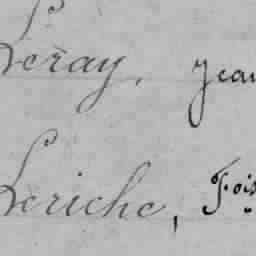 Leray, Jean
Leriche, Fois